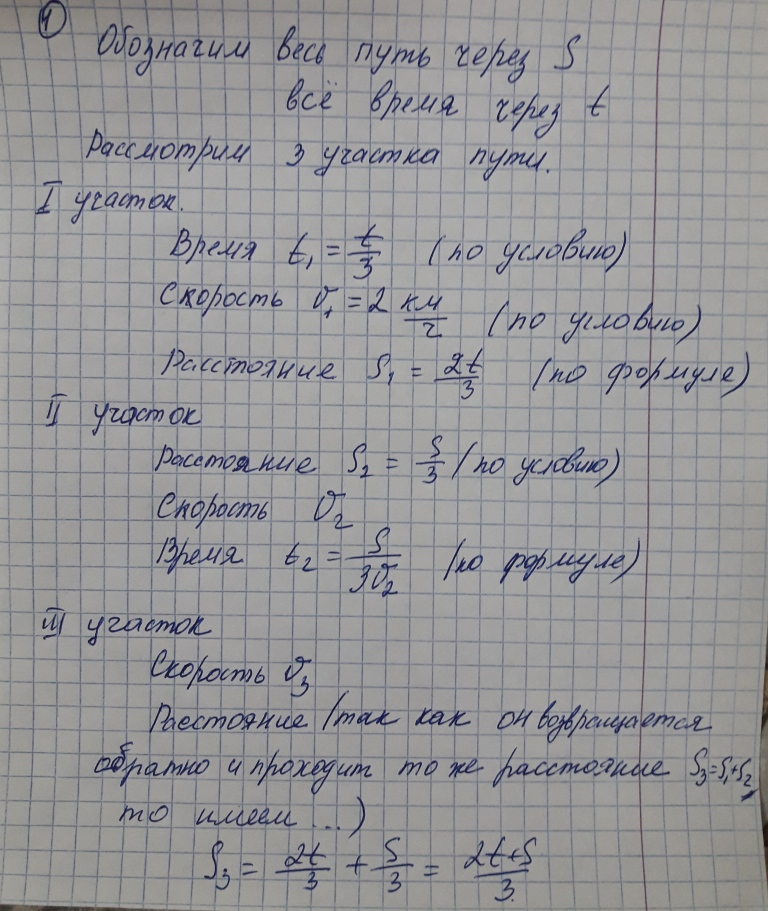 1
Обозначим весь путь через S
всё время через t
Рассмотрим 3 участка пути.
I участок.
Время t₁ = t/3 (по условию)
Скорость v₁ = 2 км/ч (по условию)
Расстояние S₁ = 2t/3 (по формуле)
II участок
Расстояние S₂ = S/3 (по условию)
Скорость v₂
Время t₂ = S/3v₂ (по формуле)
III участок
Скорость v₃
Расстояние (так как он возвращается
обратно и проходит то же расстояние S₃=S₁+S₂,
то имеем ...)
S₃ = 2t/3 + S/3 = 2t+S/3.